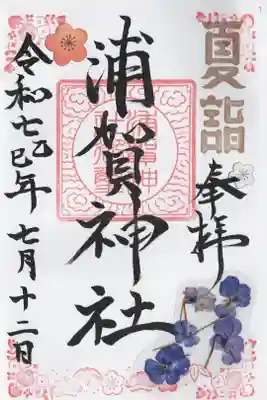 夏詣
奉拝
浦賀神社
令和七乙巳年七月十二日